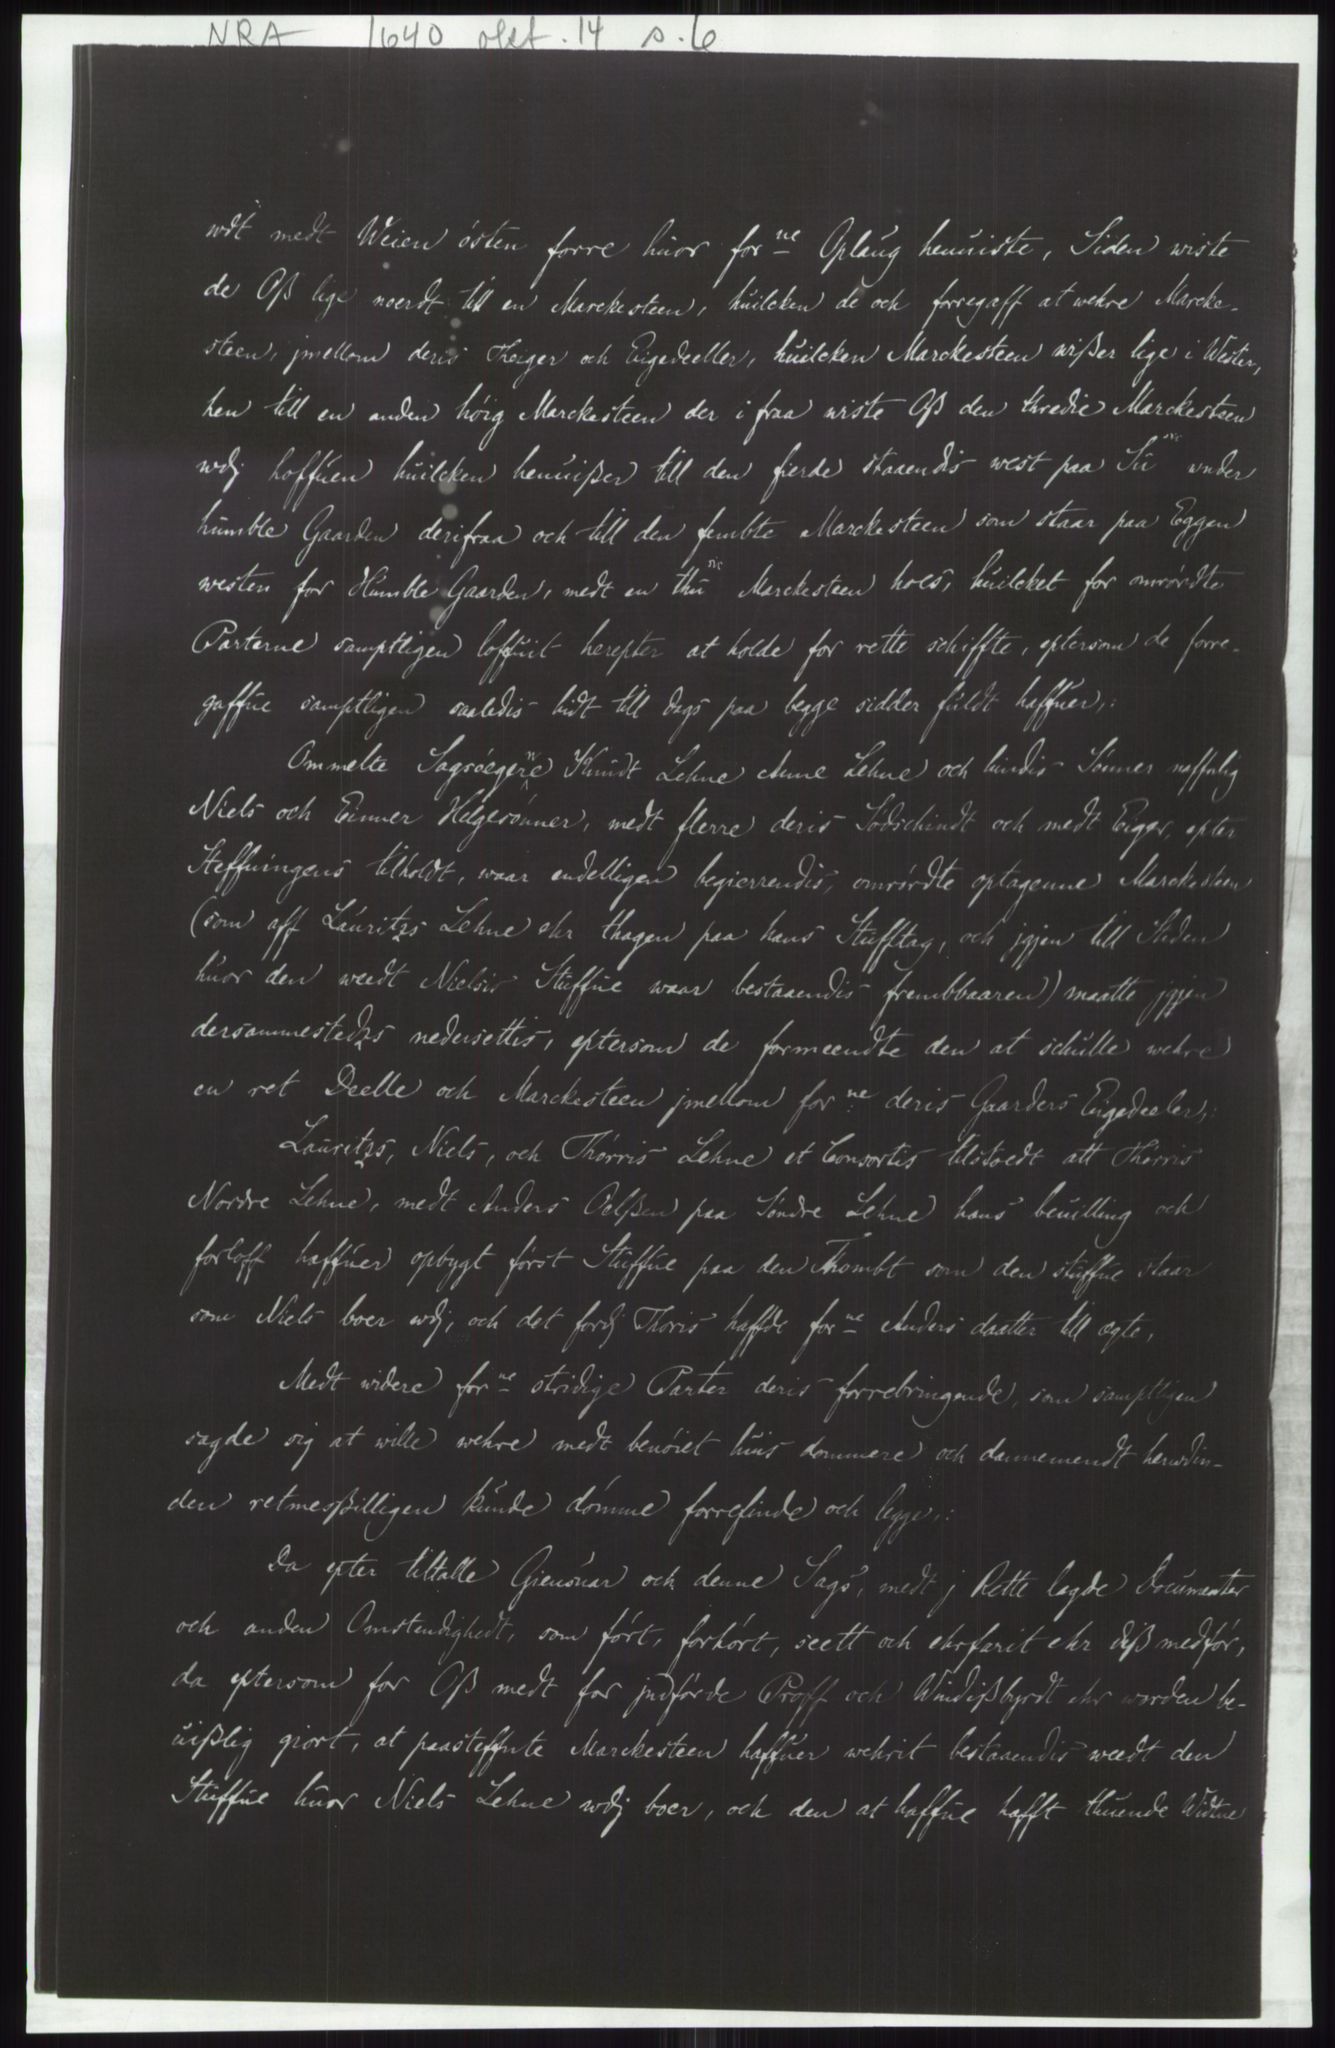 NRA 1640 okt. 14 s. 6
wdt medt Weien östen forre huor for ne Oplaug henuiste, Siden wiste
de Oß lige noerdt till en Marckesteen, huilcken de och forregaff at wehre Marcke-
steen, jmellom deris Theiger och Eigedeeller, huilcken Marckesteen wißer lige i Wester,
hen till en anden höig Marckesteen der i fraa wiste Oß den thredie Marckesteen
wdj hoffuen huilcken henuißer till den fierde staaendis west paa Sü sic wnder
humble Gaarden derifraa och till den fembte Marckesteen som staar paa Eggen
westen for Humble Gaarden, medt en thu sic Marckesteen hoes, huilcket for omrördte
Parterne samptligen loffuit herepter at holde for rette schiffte, eptersom de forre-
gaffue samptligen saaledis hidt till dags paa begge sidder füldt haffuer,:
Ommelte Sagsöegere ne Knudt Lehne Anne Lehne och hindis Sönner naffnlig
Niels och Einner Helgesönner, medt flerre deris Sodschindt och medt Eiger, epter
Steffningens tilholdt, waar endelligen begierrendis, omrördte optagenne Marckesteen
(som aff Lauritzs Lehne ehr thagen paa hans Stufftag, och jgjen till Steden
huor den weedt Nielsis Stuffue waar bestaaendis frembbaaren) maatte jgjen
dersammestedzs nedersettis, eptersom de formeendte den at schulle wehre
en ret Deelle och Marckesteen jmellom for ne deris Gaarders Eigedeeler,:
Lauritzs, Niels, och Thörris Lehne et Consortis tilstoedt att Thörris
Nordre Lehne, medt Anders Oelßen paa Söndre Lehne hans beuilling och
forloff haffuer opbygt först Stuffue paa den Thombt som den stuffue staar
som Niels boer wdj, och det fordj Thöris haffde for ne Anders daatter till egte.
Medt widere for ne stridige Parter deris forrebringende, som samptligen
sagde sig at wille wehre medt benöiet huis dommere och dannemendt herwdin-
den retmeßilligen kunde dömme forrefinde och legge,:
Da epter tiltalle Giensuar och denne Sags, medt j Rette lagde Documenter
och anden Omstendighedt, som fört, forhört, seett och ehrfarit ehr diß medför,
da eptersom for Oß medt for jndförde Proff och Windißbyrdt ehr worden be-
uißlig giort, at paasteffnte Marckesteen haffuer wehrit bestaaendis weedt den
Stuffue huor Niels Lehne wdj boer, och den at haffue hafft thuende Widtne